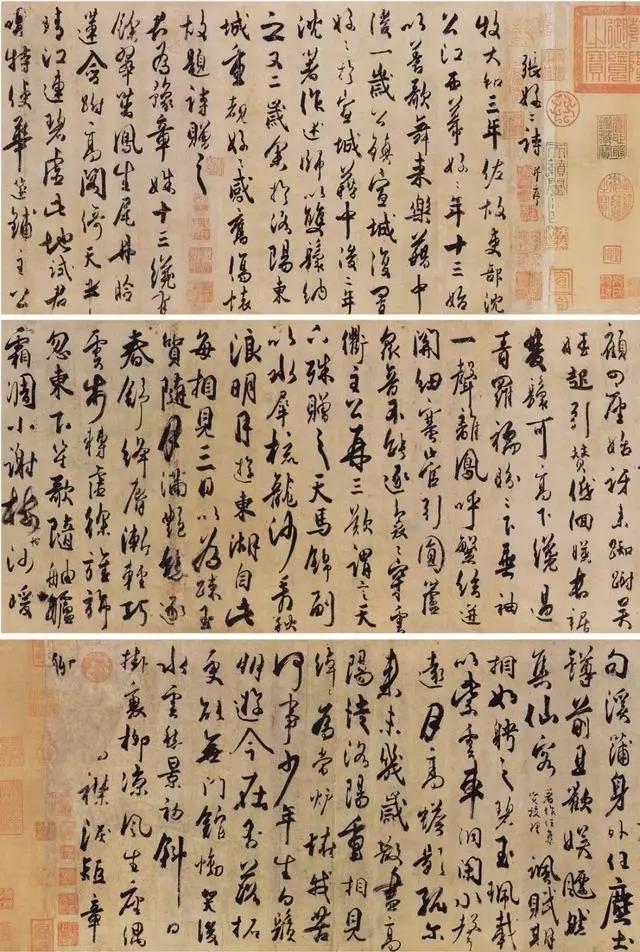 張好好詩 并序
牧大和三年佐故吏部沈
公江西幕好好年十三始
以善歌舞來樂籍中
後一歲公鎮宣城復置
好好於宣城籍中後二年
沈著作述師以雙鬟納
之又二歲余於洛陽東
城重覩好好感舊傷懷
故題詩贈之
君為豫章姝十三纔有
餘翠茁鳳生尾丹臉
蓮含跗高閣倚天半
晴江連碧虛此地試君
唱特使華筵鋪主公
顧四座始訝來踟躕吳
娃起引贊低佪暎長裾
雙鬟可高下纔過
青羅襦盼盼下垂袖
一聲離鳳呼繁弦迸
關紐塞管引圓蘆
衆音不能逐裊裊穿雲
衢主公再三歎謂言天
下殊贈之天馬錦副
以水犀梳龍沙看秋
浪明月遊東湖自此
每相見三日以為疎玉
質隨月滿艷態逐
春舒絳唇漸輕巧
雲步轉虛徐旌旆
忽東下笙歌隨舳艫
霜凋小謝樓樹沙暖
句溪蒲身外任塵土
罇前且歡娛飄然
集仙客 著作任集賢校理 諷賦期
相如聘之碧玉珮載
以紫雲車洞閉水聲
遠月高蟾影孤爾
來未幾歲散盡高
陽徒洛陽重相見
綽綽為當壚怪我苦
何事少年生白鬚
朋遊今在否落拓
更能無門館慟哭後
水雲愁景初斜日
掛衰柳涼風生座隅
襟淚短章
聊